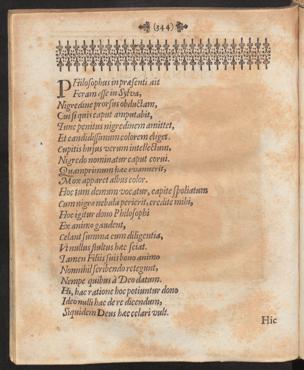 (344)
PHilosophus in præsenti ait
Feram esse in Sylva,
Nigredine prorsus obductam,
Cui si quis caput amputabit,
Tunc penitus nigredinem amittet,
Et candidissimum colorem eliget.
Cupitis hujus verum intellectum,
Nigredo nominatur caput corvi.
Quamprimum hæc evanuerit,
Mox apparet albus color.
Hoc tum demum vocatur, capite spoliatum
Cum nigra nebula perierit, credite mihi,
Hoc igitur dono Philosophi
Ex animo gaudent,
Celant summa cum diligentia,
Ut nullus stultus hæc sciat.
Tamen Filiis suis bono animo
Nonnihil scribendo retegunt,
Nempe quibus à Deo datum.
Hi, hac ratione hoc potiuntur dono
Ideo nulli hac de re dicendum,
Siquidem Deus hæc celari vult.
Hic